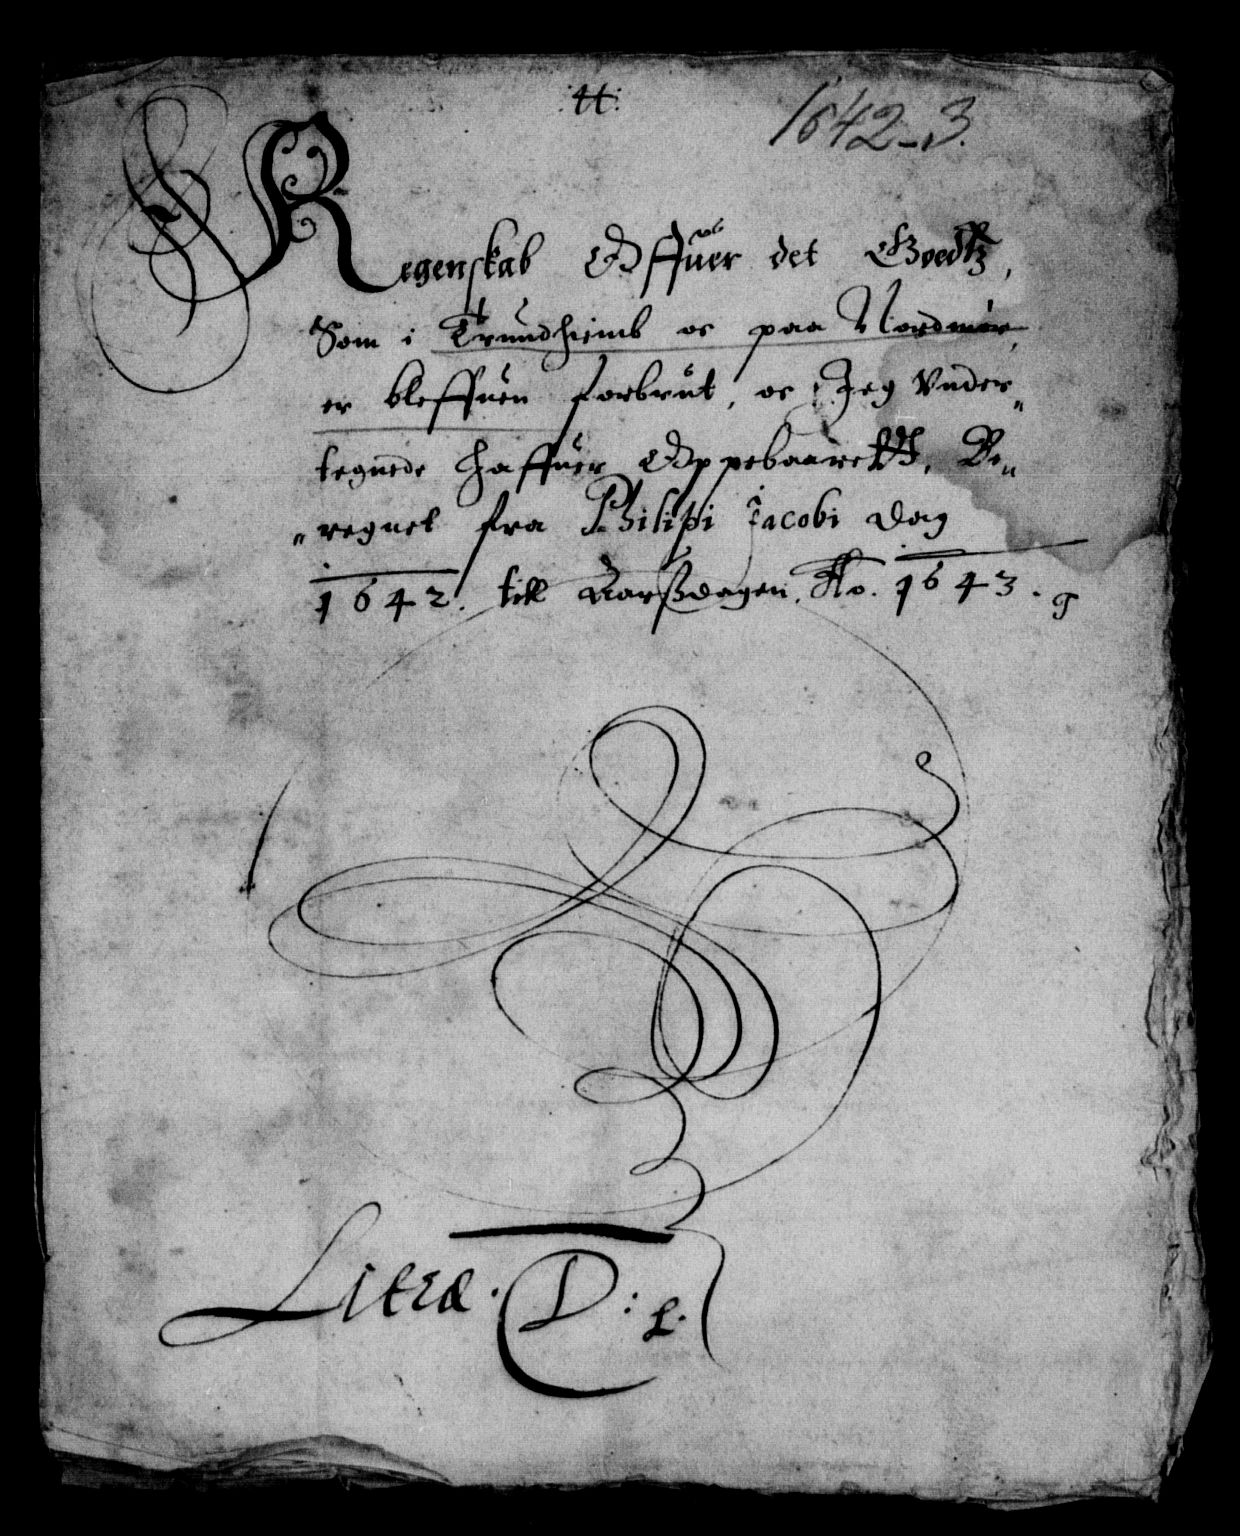 1642-3.
Regenskab Offuer det Goedtz,
Som i Trundhiemb oc paa Nordmør,
er bleffuen forbrut, oc Jeg Vnder„
tegnede haffuer Oppebaarett, Be„
„regnet fra Philippi Jacobi dag
1642. till Aarssdagen. Ao. 1643.
Litra. D: